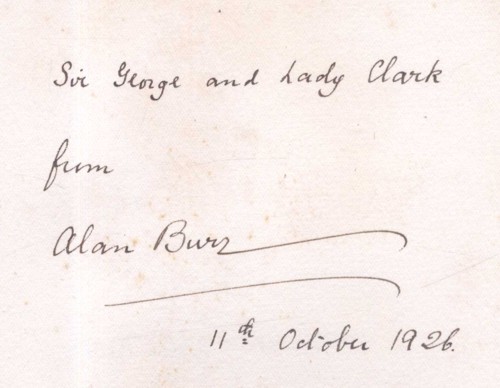 Sir George and Lady Clark
from
Alan Burz
11th October 1926.